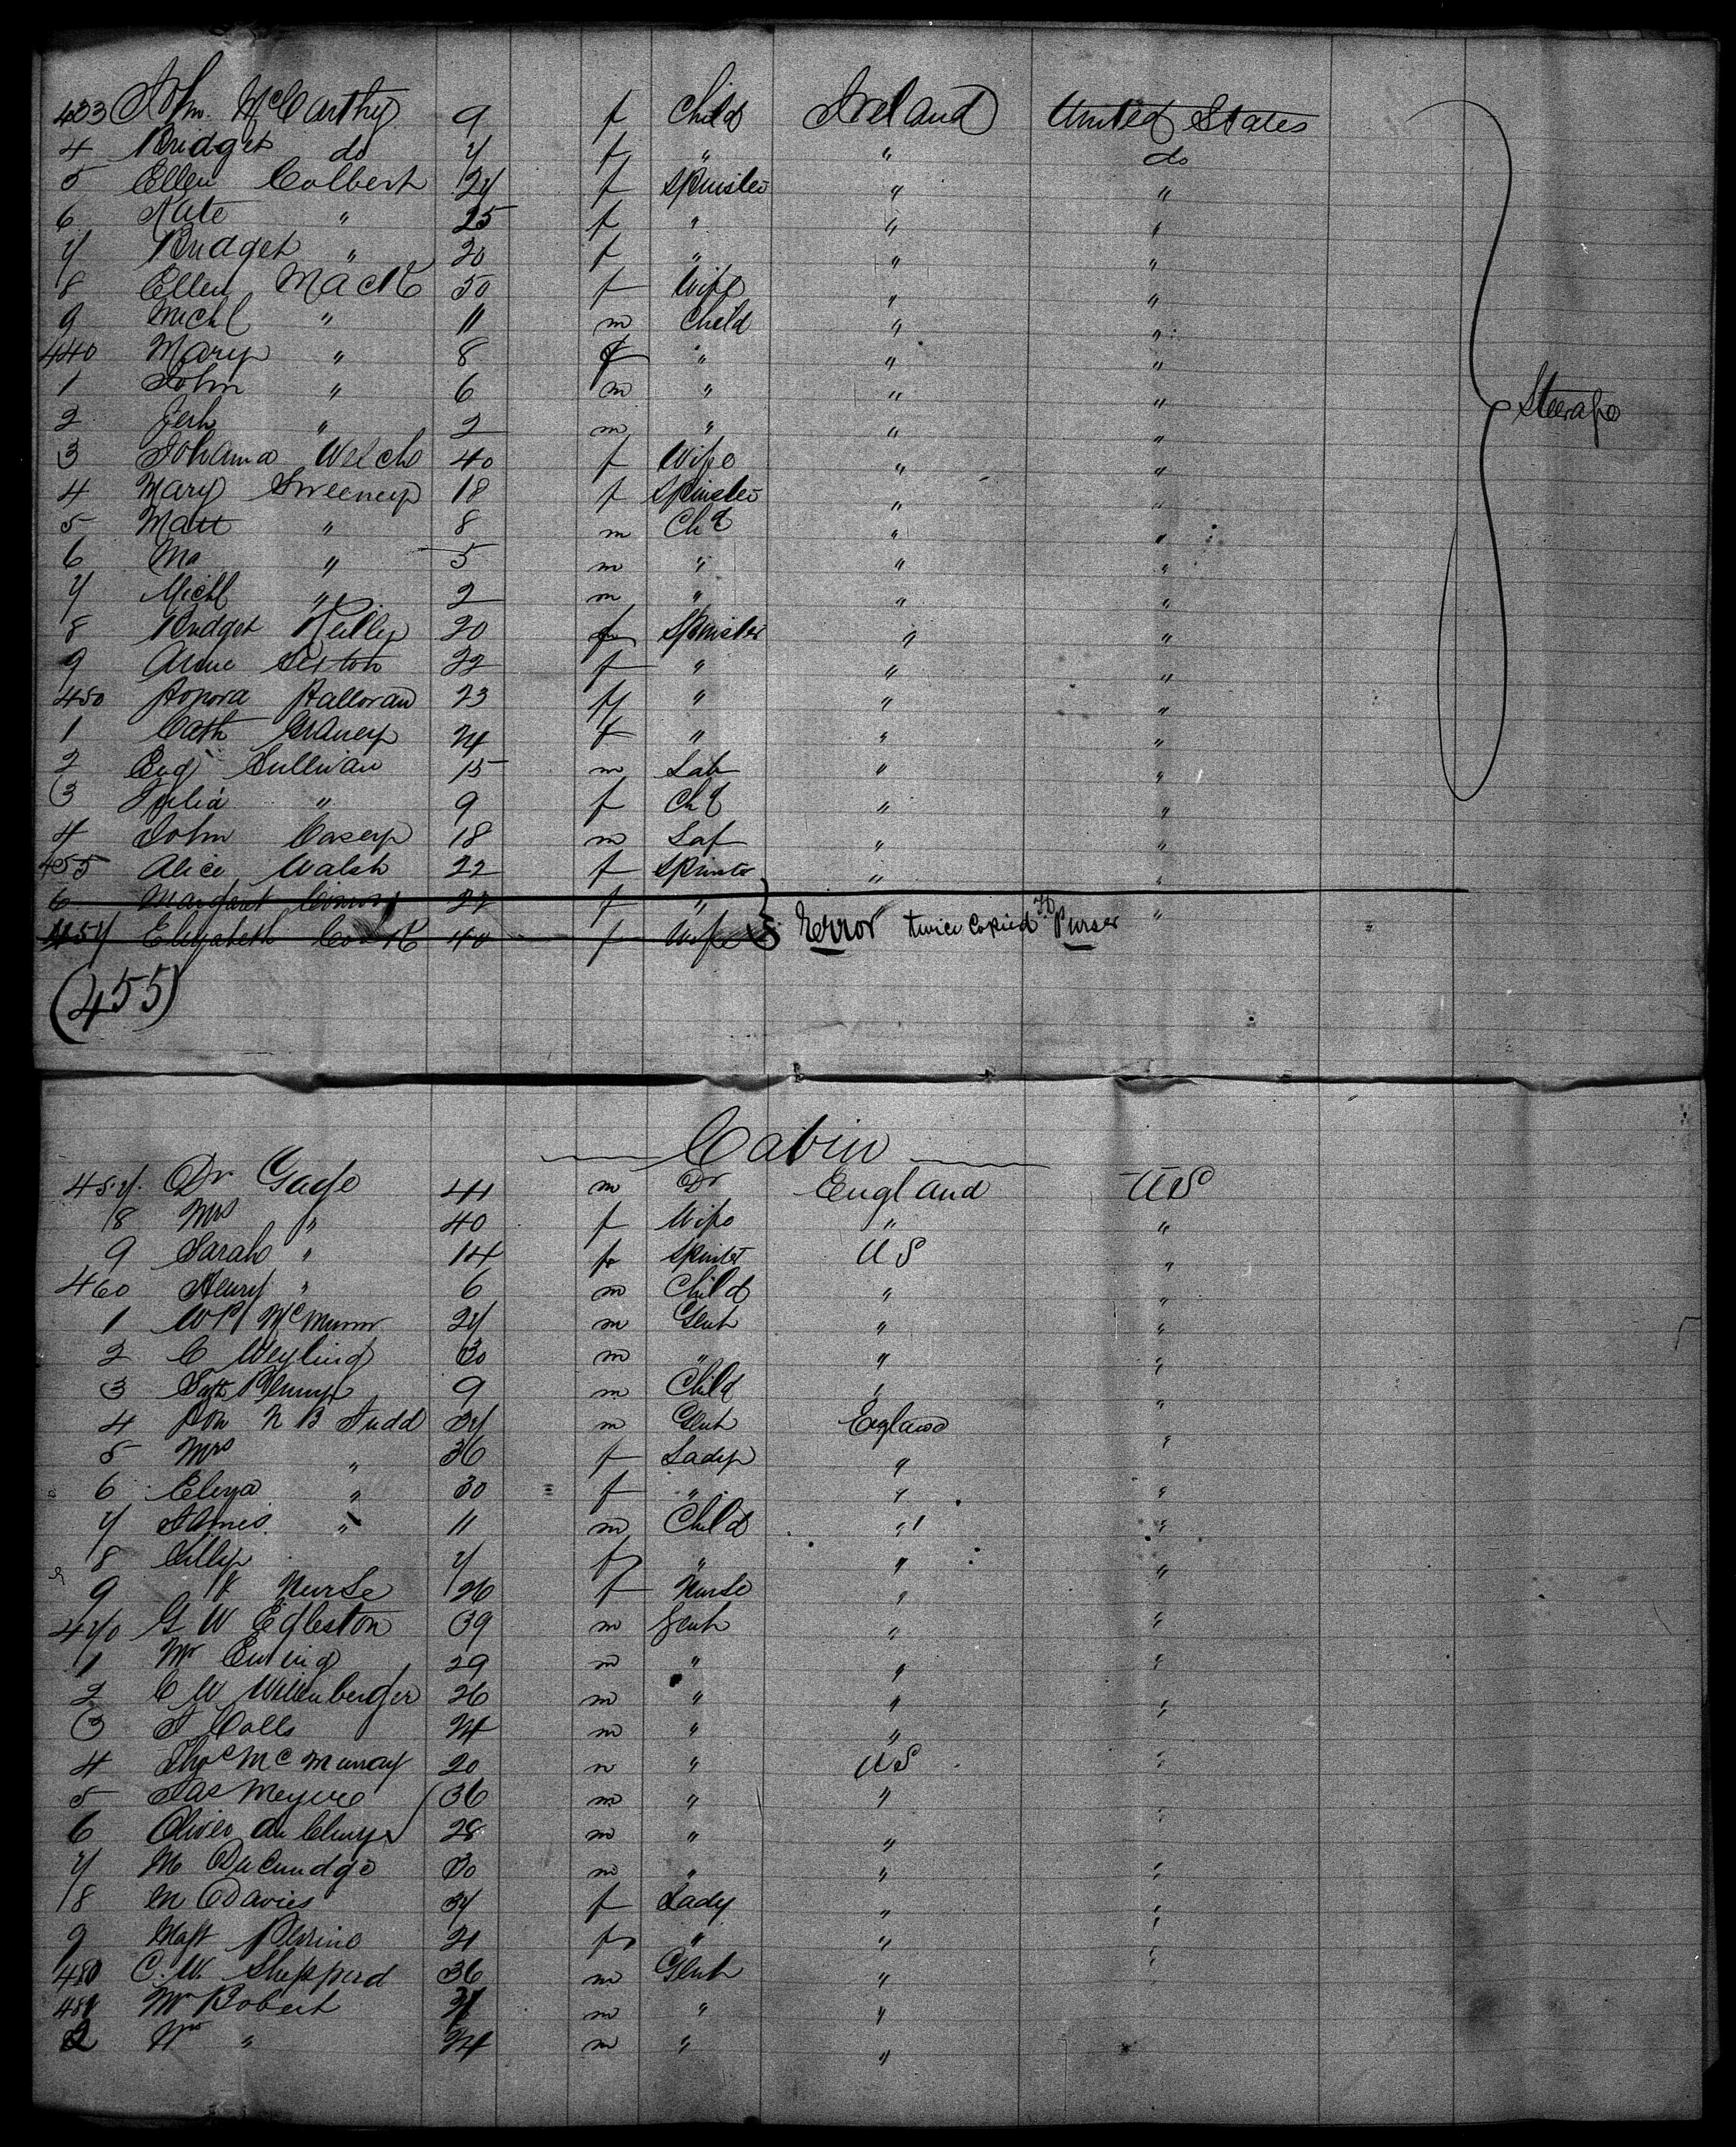 433 John McCarthy 9 f Child Ireland United States
4 Bridget do 7 f " " do
5 Ellen Colbert 27 f Spinster " "
6 Kate " 25 f " " "
7 Bridget " 20 f " " "
8 Ellen Mack 30 f Wife " "
9 Michl " 11 m Child " "
440 Mary " 8 f " " "
1 John " 6 m " " "
Steerage
2 Jerh " 2 m " " "
3 Johanna Welch 40 f Wife " "
4 Mary Sweeney 18 f Spinster " "
5 Matt " 8 m Chd " "
6 " 5 m " " "
7 Michl " 2 m " " "
8 Bridget Reilly 20 f Spinster " "
9 Anne Sexton 22 f " " "
450 Honora Halloran 23 f " " "
1 Cath 24 f " " "
2 Eug Sullivan 15 m Lab " "
3 Julia " 9 f Chd " "
4 John Casey 18 m Lab " "
455 Alice Walsh 22 f Spinster " "
6 Margaret 27 f " "
457 Elizabeth 40 f Wife Error twice copied Purser
(455)
Cabin
457 Dr Gage 44 m Dr England US
8 Mrs " 40 f Wife " "
9 Sarah " 14 f Spinster US "
460 Henry " 6 m Child " "
1 27 m Gent " "
2 C Weyling 30 m " " "
3 9 m Child " "
4 Hon N B Judd 37 m Gent England "
5 Mrs " 36 f Lady " "
6 Eliza " 30 f " " "
7 James " 11 m Child " "
8 Lilly 7 f " " "
9 Nurse 26 f Nurse " "
470 G W Egleston 39 m Gent " "
1 Mr Ewing 29 m " " "
2 C W Willenberger 26 m " " "
3 24 m " " "
4 Thos McMurray 20 m " US "
5 Jas 36 m " " "
6 Oliver 28 m " " "
7 M 30 m " " "
8 M Davies 37 f Lady " "
9 Perrine 21 f " " "
480 C. W. Shepperd 36 m Gent " "
481 Mr Robert m " "
2 " 24 m " "